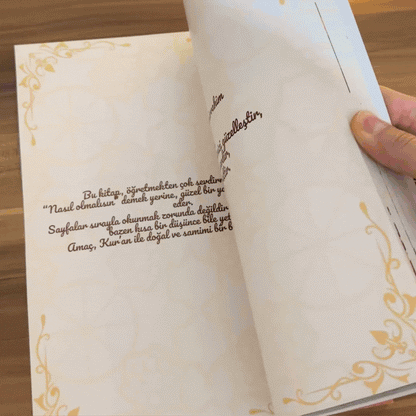 Bu kitap, öğretmekten çok sevdir
"Nasıl olmalısın" demek yerine, güzel bir
eder.
Sayfalar sırayla okunmak zorunda değildir
bazen kısa bir düşünce bile
Amaç, Kur'an ile doğal ve samimi bir
güzelleştir,